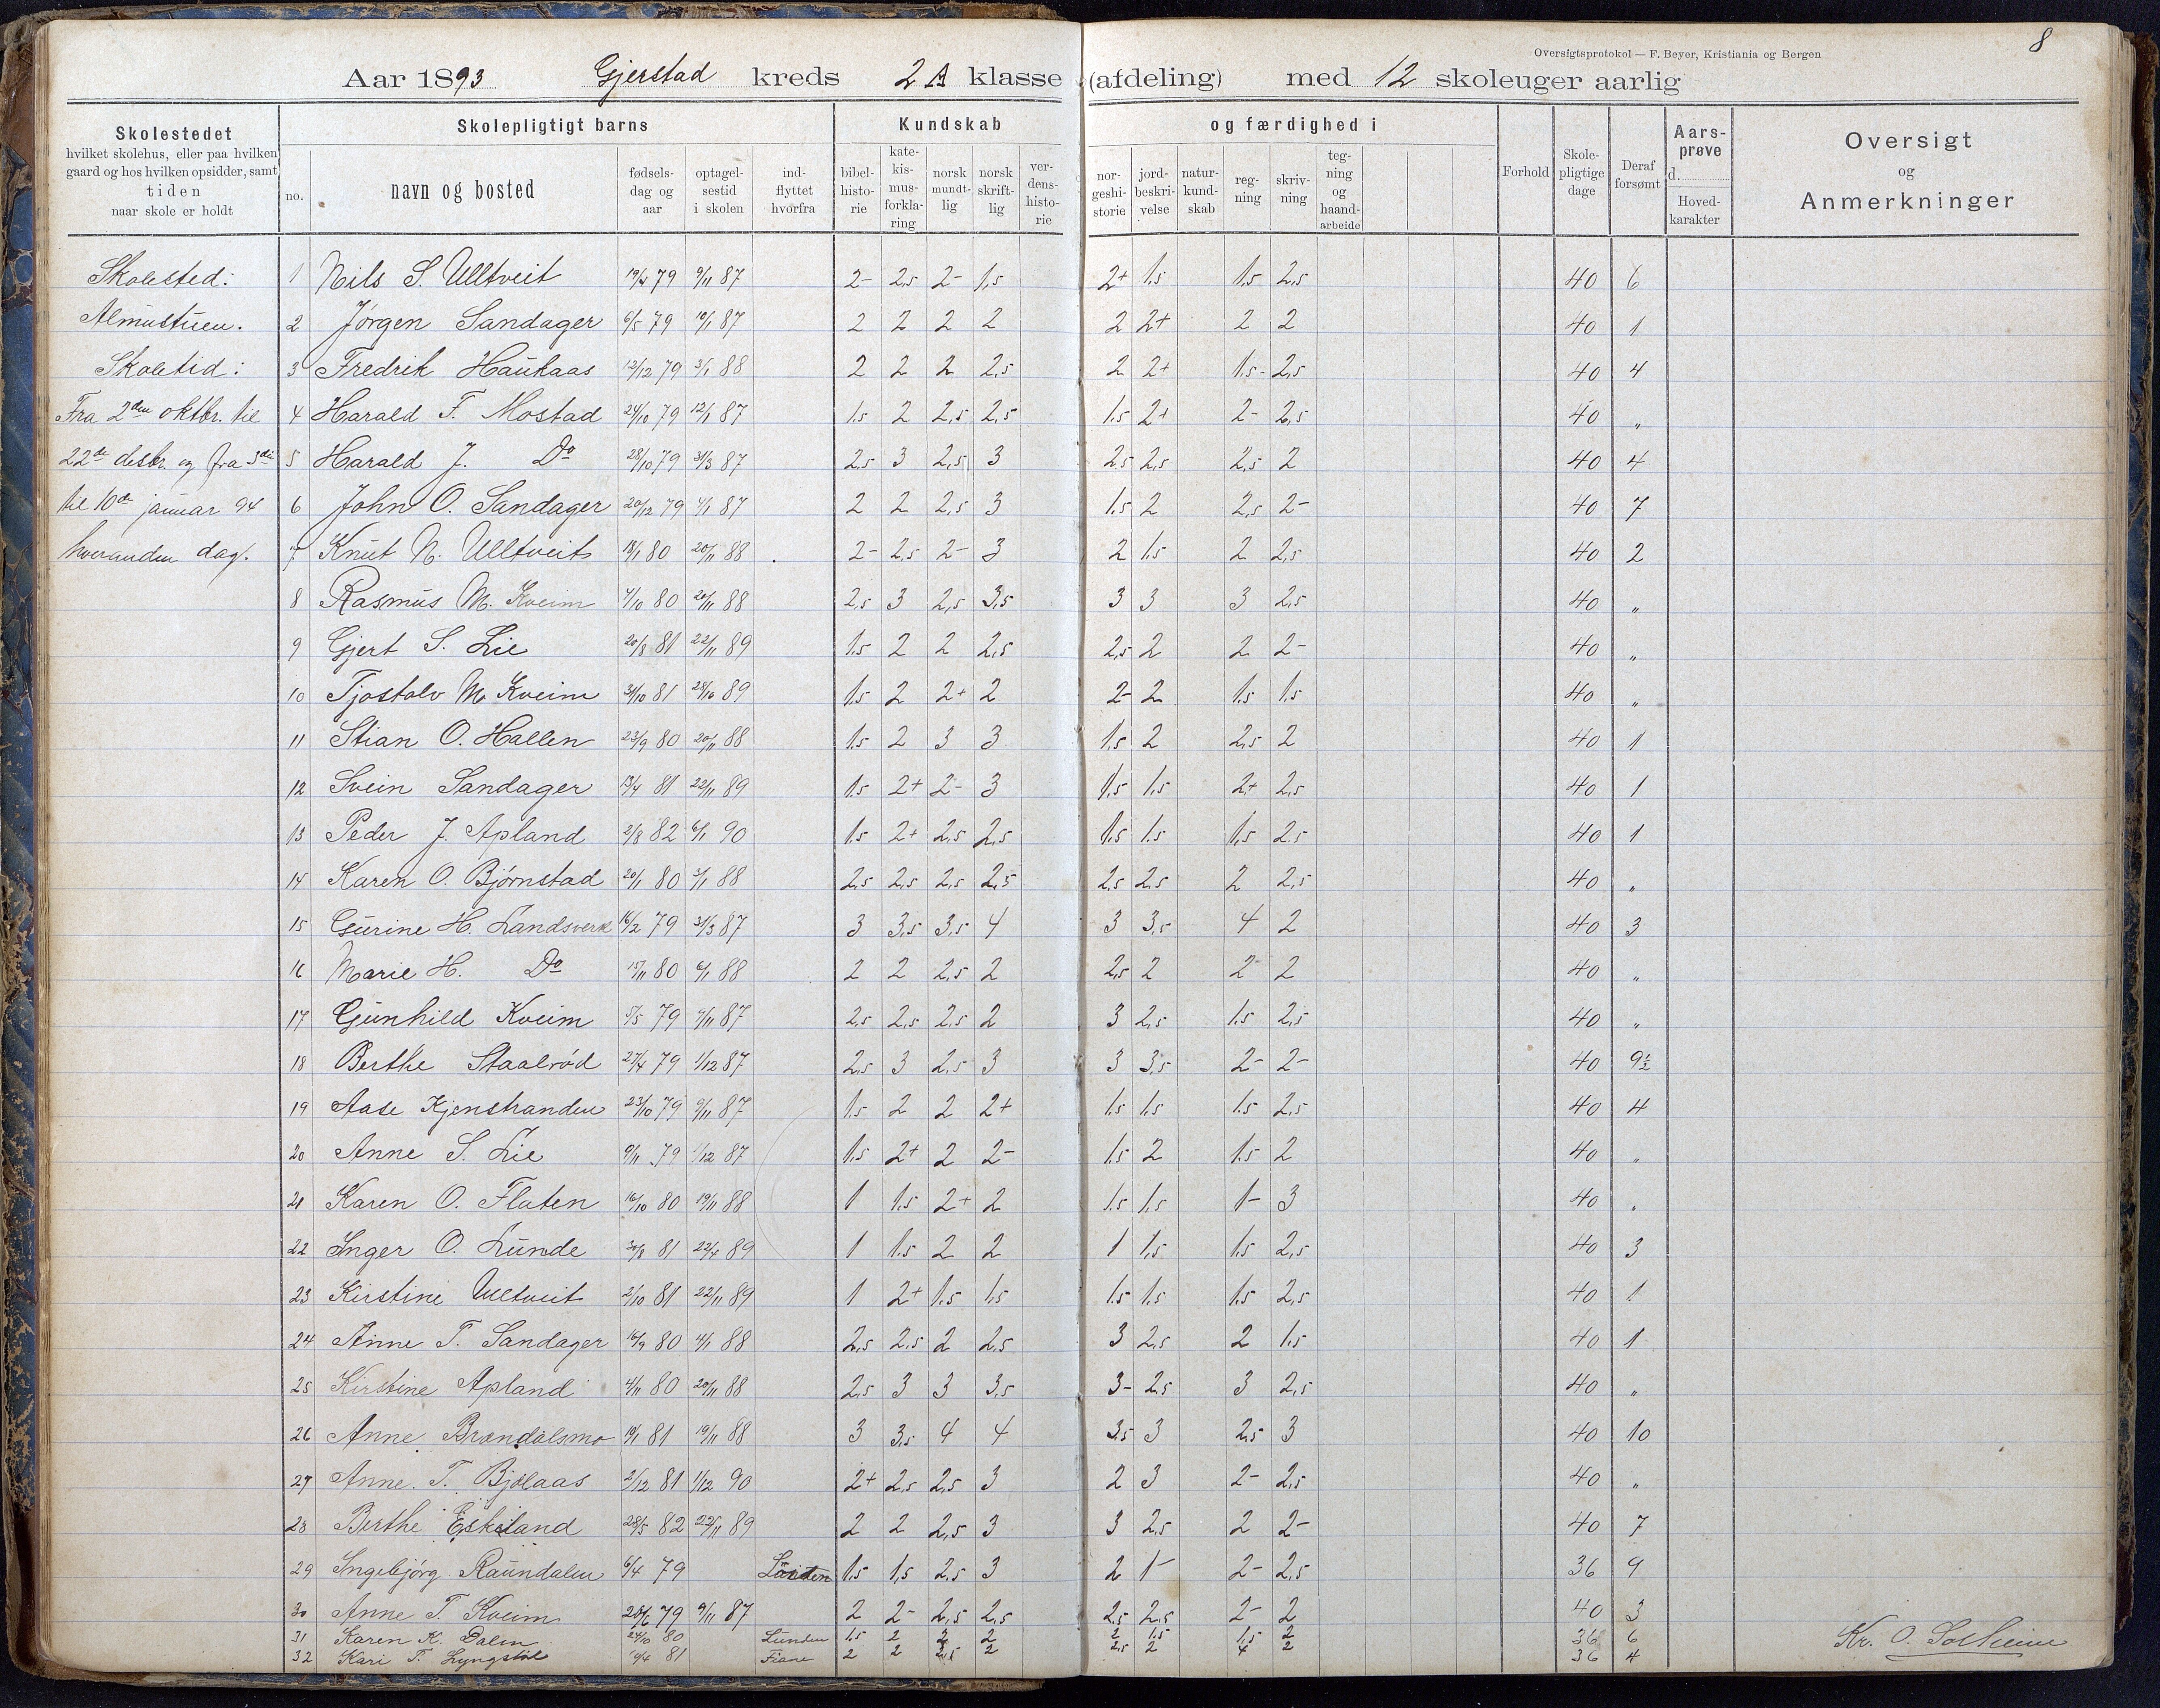 8
Oversigtsprotokol — F. Beyer, Kristiania og Bergen
Aar 1893 Gjerstad kreds 2 A klasse (afdeling) med 12 skoleuger aarlig
Skolestedet
hvilket skolehus, eller paa hvilken
gaard og hos hvilken opsidder, samt
tiden
naar skole er holdt
Skolepligtigt barns
no.
navn og bosted
fødsels-
dag og
aar
optagel-
sestid
i skolen
ind-
flyttet
hvorfra
Kundskab og færdighed i
bibel-
histo-
rie
kate-
kis-
mus-
forkla-
ring
norsk
mundt-
lig
norsk
skrift-
lig
ver-
dens-
histo-
rie
nor-
geshi-
storie
jord-
beskri-
velse
natur-
kund-
skab
reg-
ning
skriv-
ning
teg-
ning
og
haand-
arbeide
Forhold
Skole-
pligtige
dage
Deraf
forsømt
Aars-
prøve
d.
Hoved-
karakter
Oversigt
og
Anmerkninger
Skolested:
Almustuen.
Skoletid:
Fra 2den oktbr. til
22de desbr. og fra 3die
til 10de januar 94
hveranden dag.
1 Nils S. Ulltveit 19/4 79 9/11 87 2- 2,5 2- 1,5 2+ 1,5 1,5 2,5 40 6
2 Jørgen Sandager 6/5 79 10/1 87 2 2 2 2 2 2+ 2 2 40 1
3 Fredrik Haukaas 12/12 79 3/1 88 2 2 2 2,5 2 2+ 1,5- 2,5 40 4
4 Harald T. Mostad 24/10 79 12/1 87 1,5 2 2,5 2,5 1,5 2+ 2- 2,5 40 "
5 Harald J. Do 28/10 79 31/3 87 2,5 3 2,5 3 2,5 2,5 2,5 2 40 4
6 John O. Sandager 20/12 79 4/1 87 2 2 2,5 3 1,5 2 2,5 2- 40 7
7 Knut N. Ulltveit 18/1 80 20/11 88 2- 2,5 2- 3 2 1,5 2 2,5 40 2
8 Rasmus M. Kveim 4/10 80 20/11 88 2,5 3 2,5 3,5 3 3 3 2,5 40 "
9 Gjert S. Lie 20/8 81 22/11 89 1,5 2 2 2,5 2,5 2 2 2- 40 "
10 Tjostolv M. Kveim 31/10 81 28/10 89 1,5 2 2+ 2 2- 2 1,5 1,5 40 "
11 Stian O. Hallen 23/9 80 20/11 88 1,5 2 3 3 1,5 2 2,5 2 40 1
12 Svein Sandager 19/4 81 22/11 89 1,5 2+ 2- 3 1,5 1,5 2+ 2,5 40 1
13 Peder J. Apland 2/8 82 6/1 90 1,5 2+ 2,5 2,5 1,5 1,5 1,5 2,5 40 1
14 Karen O. Bjørnstad 20/1 80 3/1 88 2,5 2,5 2,5 2,5 2,5 2,5 2 2,5 40 "
15 Gurine H. Landsverk 16/2 79 31/3 87 3 3,5 3,5 4 3 3,5 4 2 40 3
16 Marie H. Do 15/11 80 6/1 88 2 2 2,5 2 2,5 2 2- 2 40 "
17 Gunhild Kveim 5/5 79 9/11 87 2,5 2,5 2,5 2 3 2,5 1,5 2,5 40 "
18 Berthe Staalrød 27/4 79 1/12 87 2,5 3 2,5 3 3 3,5 2- 2- 40 9½
19 Aase Kjenstranden 23/10 79 9/11 87 1,5 2 2 2+ 1,5 1,5 1,5 2,5 40 4
20 Anne S. Lie 9/11 79 1/12 87 1,5 2+ 2 2- 1,5 2 1,5 2 40 "
21 Karen O. Flaten 16/10 80 19/11 88 1 1,5 2+ 2 1,5 1,5 1- 3 40 "
22 Inger O. Lunde 30/8 81 22/4 89 1 1,5 2 2 1 1,5 1,5 2,5 40 3
23 Kirstine Ulltveit 2/10 81 22/11 89 1 2+ 1,5 1,5 1,5 1,5 1,5 2,5 40 1
24 Anne T. Sandager 16/9 80 4/1 88 2,5 2,5 2 2,5 3 2,5 2 1,5 40 1
25 Kirstine Apland 4/11 80 20/11 88 2,5 3 3 3,5 3- 2,5 3 2,5 40 "
26 Anne Brændalsmo 19/1 81 19/11 88 3 3,5 4 4 3,5 3 2,5 3 40 10
27 Anne T. Bjølaas 2/12 81 1/12 90 2+ 2,5 2,5 3 2 3 2- 2,5 40 "
28 Berthe Eskeland 28/5 82 22/11 89 2 2 2,5 3 3 2,5 2 2- 40 7
29 Ingebjørg Raundalen 6/4 79 1,5 1,5 2,5 3 2 1- 2- 2,5 36 9
30 Anne T. Kveim 28/6 79 9/11 87 2 2- 2,5 2,5 2,5 2,5 2- 2 40 3
31 Karen K. Dalen 24/10 80 Lunden 1,5 2 2 2 2 1,5 1,5 2 36 6
32 Kari T. Lyngstøl 10/4 81 Fiane 2 2 2,5 2 2,5 2 4 2 36 4
Kr. O. Solheim